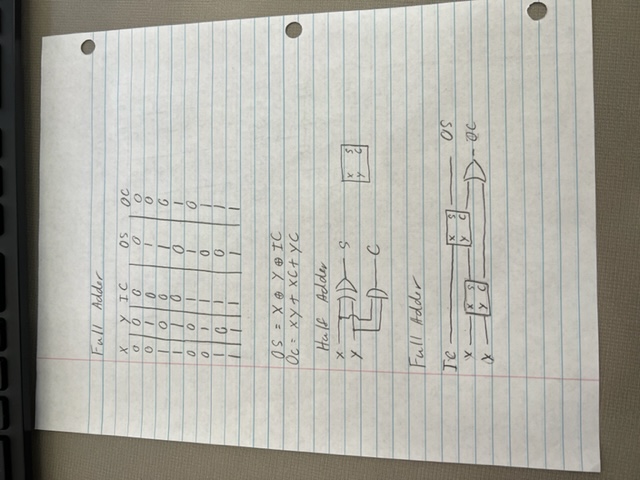 Full Adder
X Y IC OS OC
0 0 0 0 0
0 1 0 1 0
1 0 0 1 0
1 1 0 0 1
0 0 1 1 0
0 1 1 0 1
1 0 1 0 1
1 1 1 1 1
OS = X ⊕ Y ⊕ IC
OC = XY + XC + YC
Half Adder
X S X S
Y Y C
C
Full Adder
IC X S OS
X X S Y C OC
X Y C